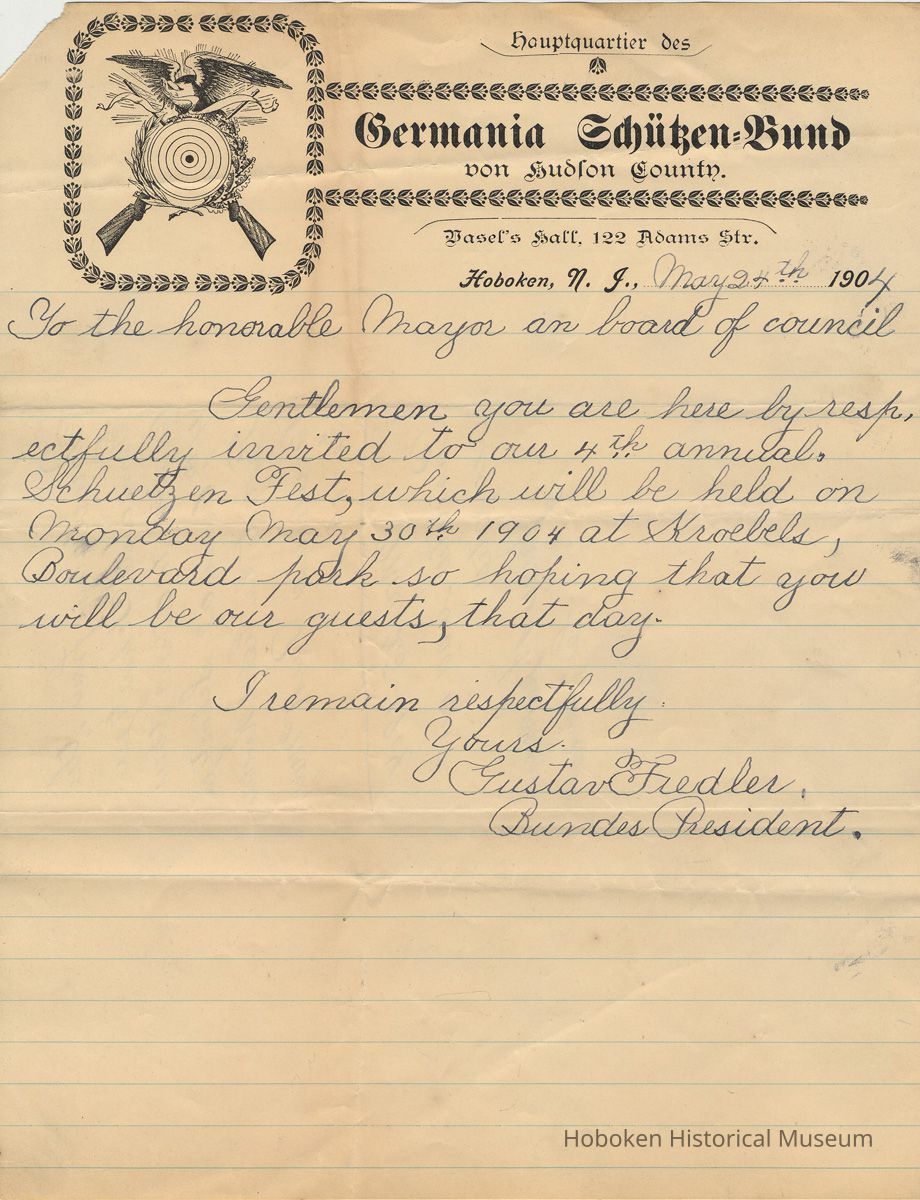 Hauptquartier des
Germania Schützen-Bund
von Hudson County.
Vasel's Hall, 122 Adams Str.
Hoboken, N. J., May 24th 1904
To the honorable Mayor an board of council
Gentlemen you are here by resp,
ectfully invited to our 4th annual.
Schuetzen Fest, which will be held on
Monday May 30th 1904 at Kroebels,
Boulevard park so hoping that you
will be our guests, that day.
I remain respectfully.
Yours.
Gustav Fiedler.
Bundes President.
Hoboken Historical Museum